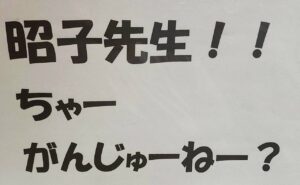 昭子先生！！
ちゃー
がんじゅーねー？